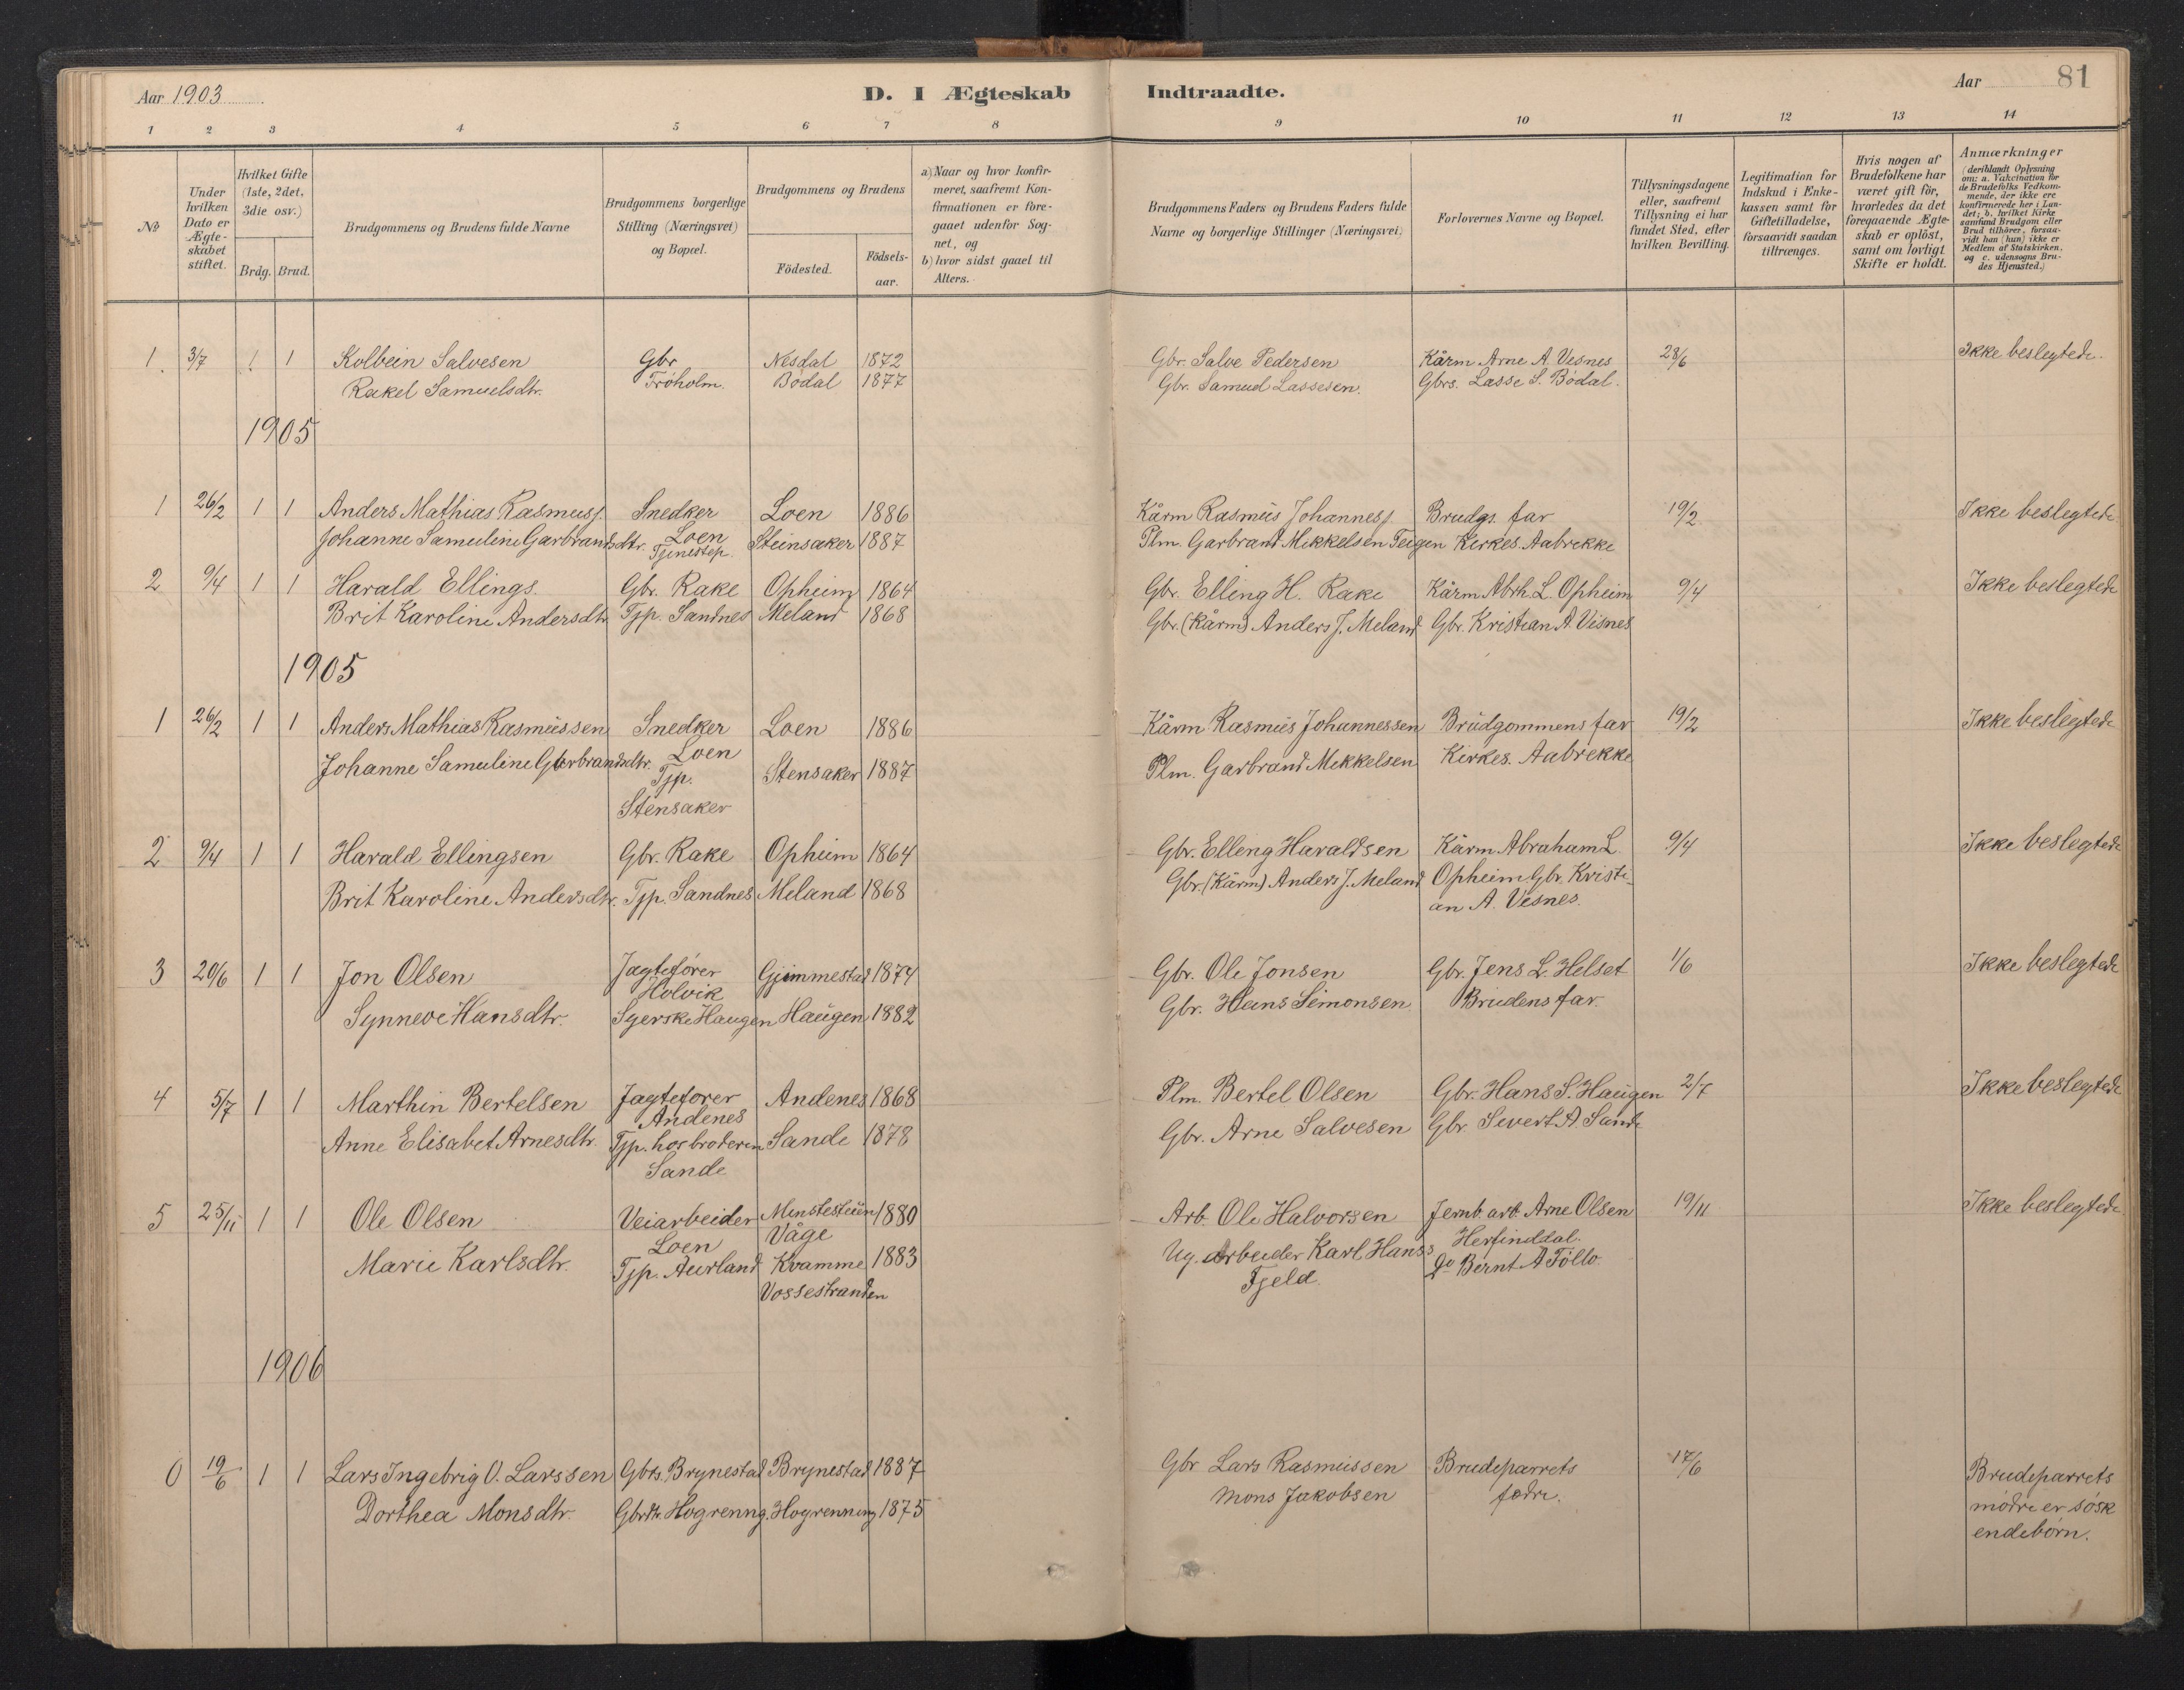 Aar 1903 D. I Ægteskab Indtraadte. Aar 81
1 2 3 4 5 6 7 8 9 10 11 12 13 14
No
Under hvilken Dato er Ægte-skabet stiftet.
Hvilket Gifte (1ste, 2det, 3die osv.)
Brdg. Brud.
Brudgommens og Brudens fulde Navne
Brudgommens borgerlige Stilling (Næringsvei) og Bopæl.
Brudgommens og Brudens
Födested. Födsels-aar.
a) Naar og hvor konfir-meret, saafremt Kon-firmationen er fore-gaaet udenfor Sog-net, og
b) hvor sidst gaaet til Alters.
Brudgommens Faders og Brudens Faders fulde Navne og borgerlige Stillinger (Næringsvei)
Forlovernes Navne og Bopæl.
Tillysningsdagene eller, saafremt Tillysning ei har fundet Sted, efter hvilken Bevilling.
Legitimation for Indskud i Enke-kassen samt for Giftetilladelse, forsaavidt saadan tiltrænges.
Hvis nogen af Brudefolkene har været gift för, hvorledes da det foregaaende Ægte-skab er oplöst, samt om lovligt Skifte er holdt.
Anmærkninger (deriblandt Oplysning om: a. Vakcination for de Brudefolks Vedkom-mende, der ikke ere konfirmerede her i Lan-det; b. hvilket Kirke samfund Brudgom eller Brud tilhörer, forsaa-vidt han (hun) ikke er Medlem af Statskirken, og c. udensogns Bru-des Hjemsted.)
1. 3/7 1 1 Kolbein Salvesen Gbr Nesdal 1872 Gbr. Salve Pedersen Kårm Arne A. Visnes 28/6 Ikke beslegtede.
Rakel Samuelsdtr. Tröholm. Bödal 1877 Gbr. Samuel Lassesen. Gbrs. Lasse S. Bödal.
1905
1 26/2 1 1 Anders Mathias Rasmuss. Snedker Loen 1886 Kårm Rasmus Johanness. Brudgs. far 19/2 Ikke beslegtede
Johanne Samuline Garbrandsdtr. Loen Tjenestep. Steinsaker 1887 Plm. Garbrand Mikkelsen Teigen Kirkes. Aabrekke
2 9/4 1 1 Harald Ellings. Gbr. Rake Opheim 1864 Gbr. Elling H. Rake Kårm Abrh. L. Opheim 9/4 Ikke beslegtede
Brit Karoline Andersdtr. Tjp. Sandnes Meland 1868 Gbr. (Kårm) Anders J. Meland Gbr. Kristian A. Visnes
1905
1 26/2 1 1 Anders Mathias Rasmussen Snedker Loen 1886 Kårm Rasmus Johannessen Brudgommens far 19/2 Ikke beslegtede
Johanne Samuline Garbrandsdtr. Loen Tjp. Stensaker 1887 Plm. Garbrand Mikkelsen Kirkes. Aabrekke
Stensaker
2 9/4 1 1 Harald Ellingsen Gbr. Rake Opheim 1864 Gbr. Elling Haraldsen Kårm Abraham L. 9/4 Ikke beslegtede
Brit Karoline Andersdtr. Tjp. Sandnes Meland 1868 Gbr. (Kårm) Anders J. Meland Opheim Gbr. Kristi-
an A. Visnes.
3 20/6 1 1 Jon Olsen Jagtefører Gjimmestad 1874 Gbr. Ole Jonsen Gbr. Jens L. Helset 1/6 Ikke beslegtede
Holvik
Synneve Hansdtr. Syerske Haugen Haugen 1882 Gbr. Hans Simonsen. Brudens far.
4 5/7 1 1 Marthin Bertelsen Jagtefører Andenes 1868 Plm. Bertel Olsen Gbr. Hans S. Haugen 2/7 Ikke beslegtede
Andenes
Anne Elisabet Arnesdtr. Tjp. hos broderen Sande 1878 Gbr. Arne Salvesen Gbr. Sivert A. Sande
Sande
5 25/11 1 1 Ole Olsen Veiarbeider 1880 Arb. Ole Halvorsen Jernb. arb. Arne Olsen 19/11 Ikke beslegtede
Loen Våge Herfindtal.
Marie Karlsdtr. Tjp. Aurland Kvamme 1883 Ug. arbeider Karl Hanss. Do Bernt A
Vossestranden Fjeld.
1906
0 19/6 1 1 Lars Ingebrig O. Larssen Gbrs. Brynestad Brynestad 1887 Gbr Lars Rasmussen Brudeparrets 17/6 Brudeparrets
Dorthea Monsdtr. Gbrdt. Hogrenng. Hogrenning 1875 Mons Jakobsen fædre. mödre er sösk
endebörn.